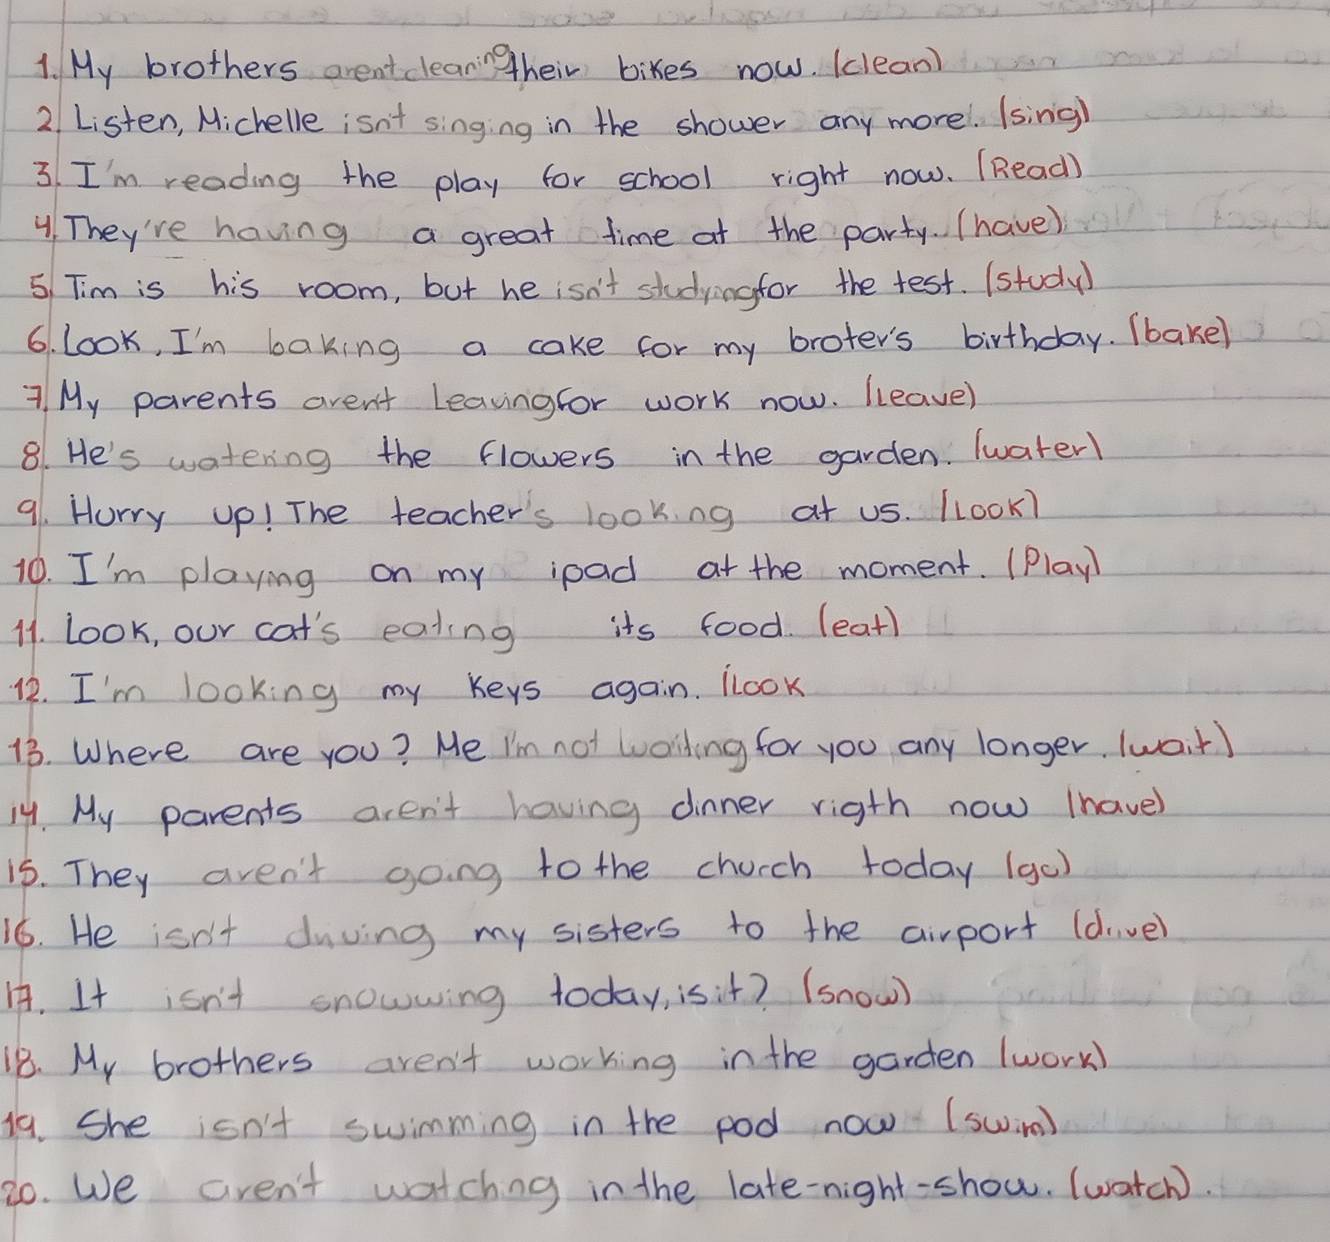 1. My brothers arent cleaning their bikes now. (clean)
2. Listen, Michelle isn't singing in the shower any more. (sing)
3. I'm reading the play for school right now. (Read)
4. They're having a great time at the party. (have)
5. Tim is his room, but he isn't studying for the test. (study)
6. Look, I'm baking a cake for my broter's birthday. (bake)
7. My parents aren't Leaving for work now. (Leave)
8. He's watering the flowers in the garden. (water)
9. Hurry up! The teacher's looking at us. (Look)
10. I'm playing on my ipad at the moment. (Play)
11. Look, our cat's eating its food. (eat)
12. I'm looking my keys again. (Look
13. Where are you? Me I'm not waiting for you any longer. (wait)
14. My parents aren't having dinner rigth now (have)
15. They aren't going to the church today (go)
16. He isn't driving my sisters to the airport (drive)
17. It isn't snowwing today, is it? (snow)
18. My brothers aren't working in the garden (work)
19. She isn't swimming in the pod now (swim)
20. We aren't watchng in the late-night-show. (watch).